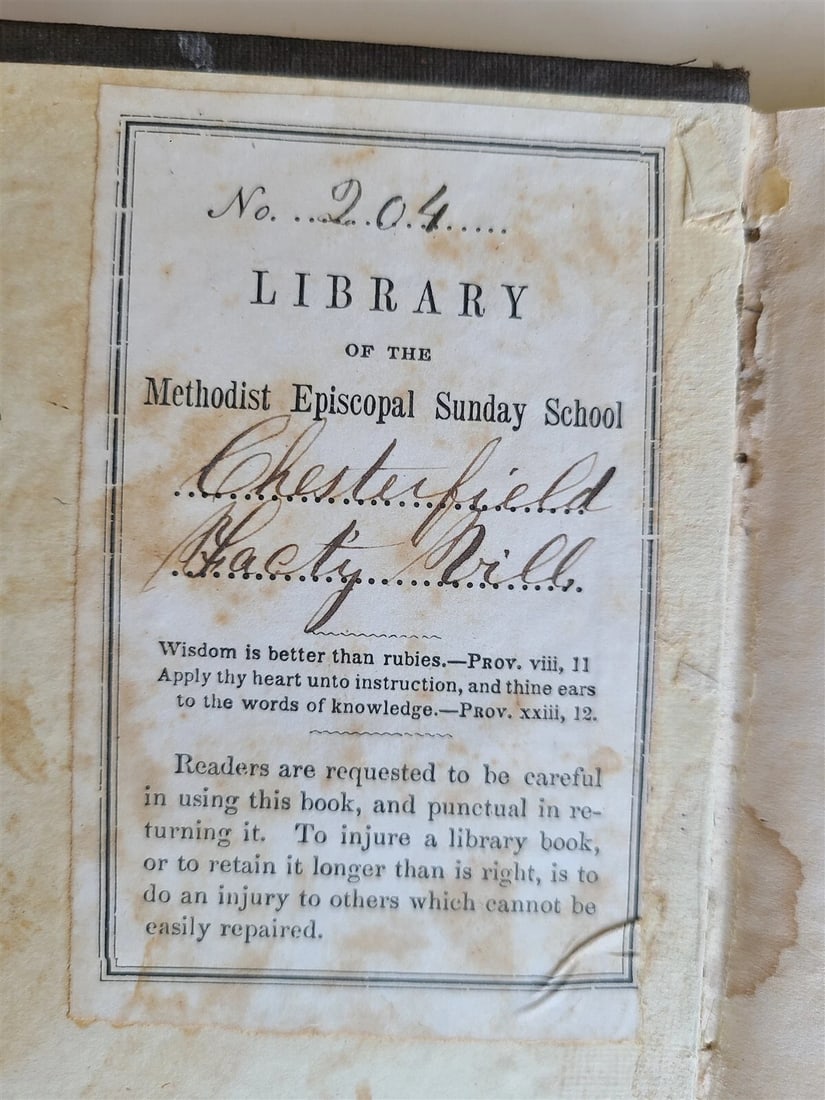 No. ...204.....
LIBRARY
OF THE
Methodist Episcopal Sunday School
Chesterfield
Facty Vill.
Wisdom is better than rubies.—PROV. viii, 11
Apply thy heart unto instruction, and thine ears
to the words of knowledge.—PROV. xxiii, 12.
Readers are requested to be careful
in using this book, and punctual in re-
turning it. To injure a library book,
or to retain it longer than is right, is to
do an injury to others which cannot be
easily repaired.